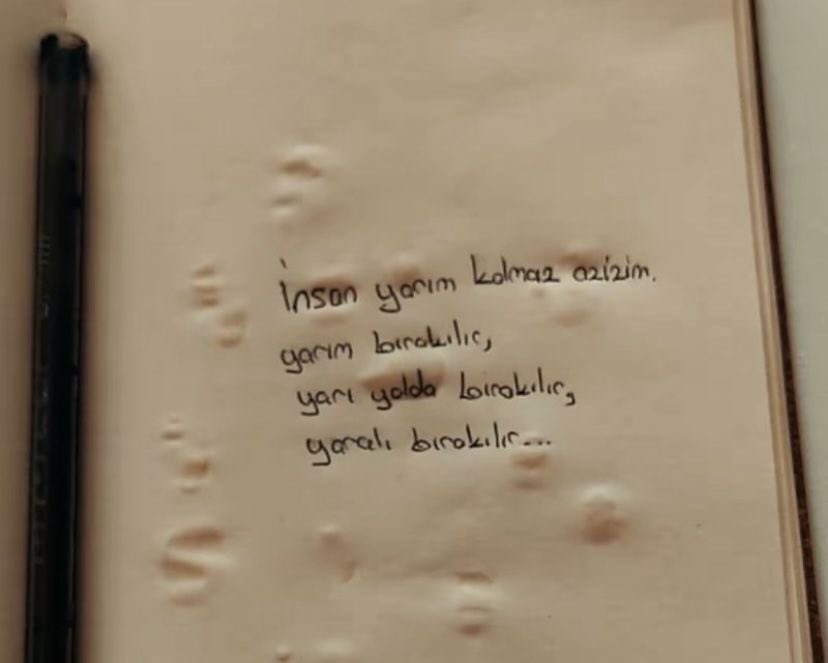 İnsan yarım kalmaz azizim.
yarım bırakılır,
yarı yolda bırakılır,
yaralı bırakılır...